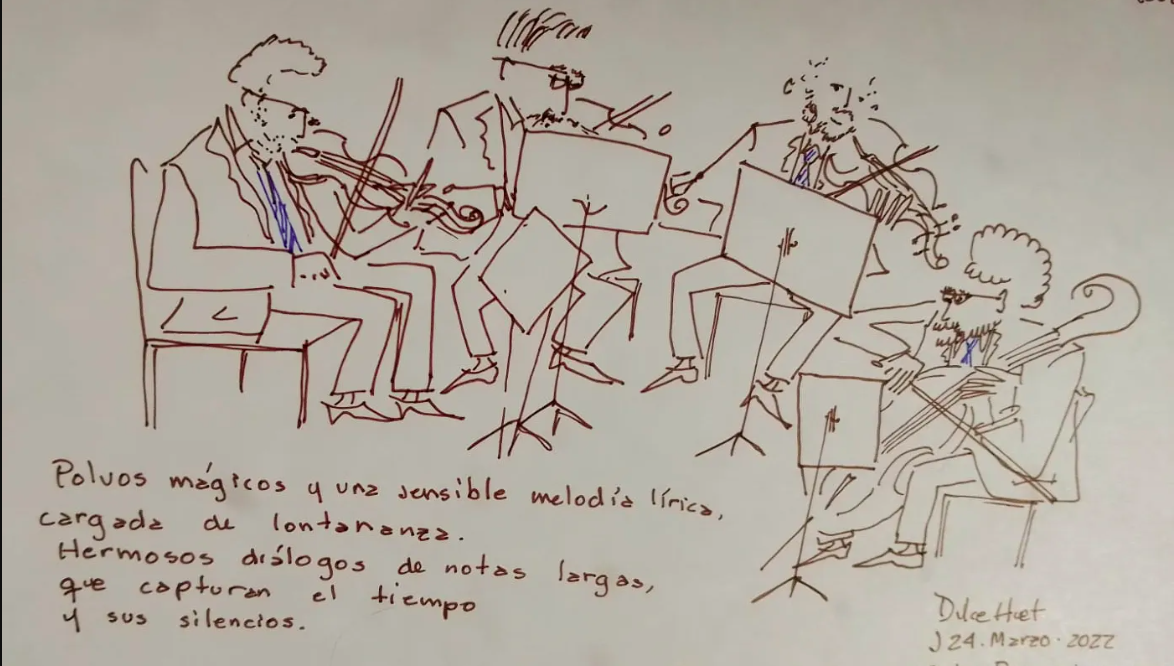 Polvos mágicos y una sensible melodía lírica,
cargada de lontananza.
Hermosos diálogos de notas largas,
que capturan el tiempo
y sus silencios.
Dulce Huet
J 24. Marzo. 2022